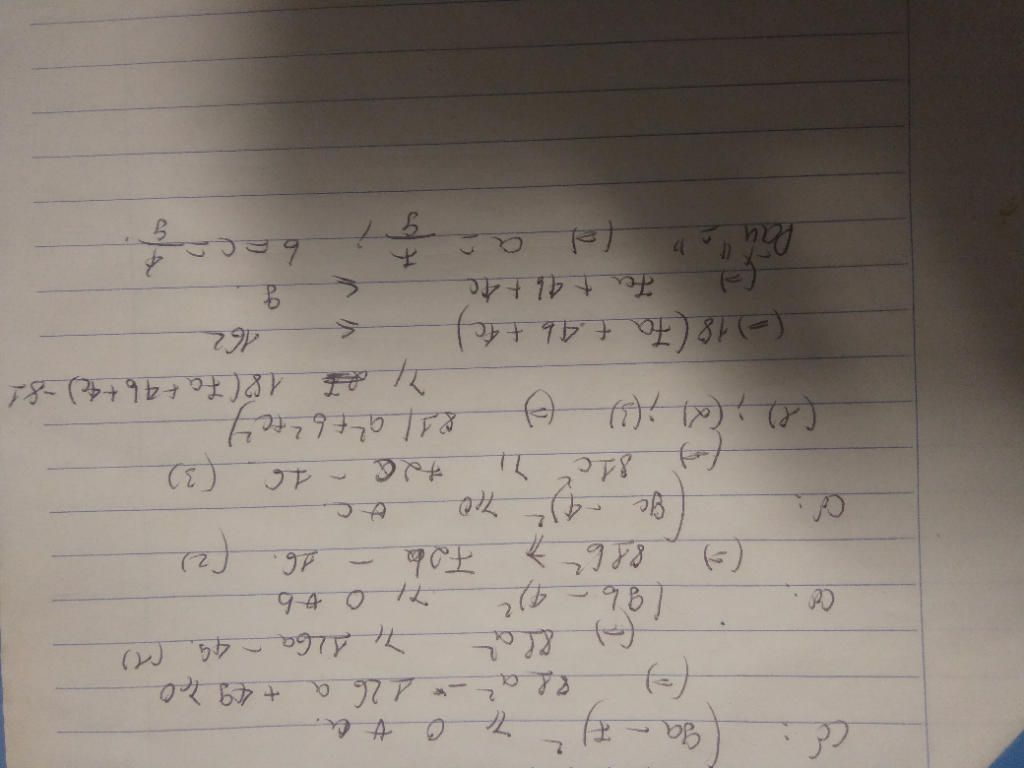 Có: (9a - 7)² ≥ 0 ∀ a.
(=) 81a² - 126a + 49 ≥ 0
(=) 81a² ≥ 126a - 49. (1)
Có: (9b - 4)² ≥ 0 ∀ b
(=) 81b² ≥ 72b - 16. (2)
Có: (9c - 4)² ≥ 0 ∀ c
(=) 81c² ≥ 72c - 16 (3)
(1); (2); (3) (=) 81(a² + b² + c²)
≥ 18(7a + 4b + 4c) - 81
(=) 18(7a + 4b + 4c) ≤ 162
(=) 7a + 4b + 4c ≤ 9.
Dấu "=" (=) a = 7/9; b = c = 4/9.